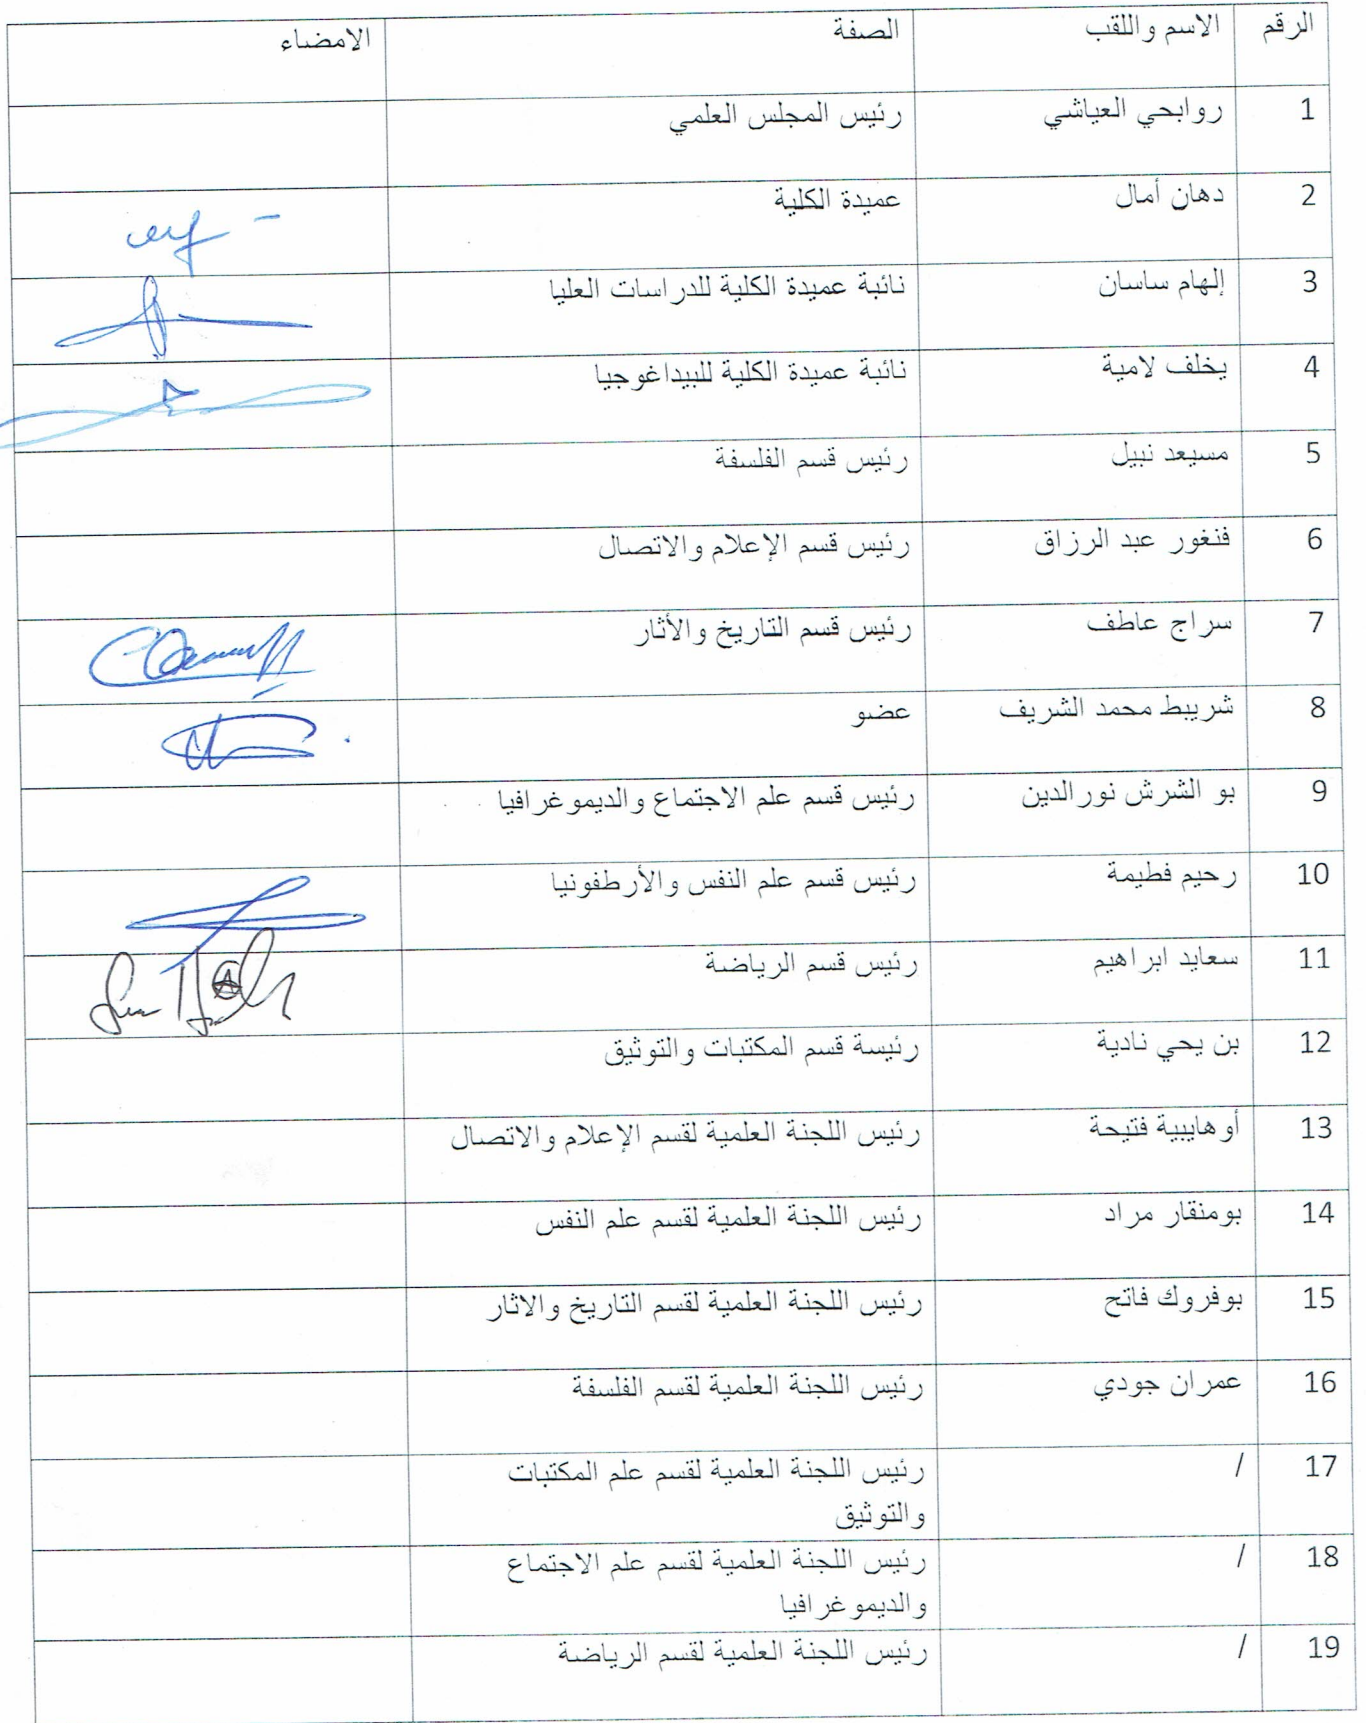 الرقم الاسم واللقب الصفة الامضاء
1 روابحي العياشي رئيس المجلس العلمي
2 دهان أمال عميدة الكلية
3 إلهام ساسان نائبة عميدة الكلية للدراسات العليا
4 يخلف لامية نائبة عميدة الكلية للبيداغوجيا
5 مسيعد نبيل رئيس قسم الفلسفة
6 فنغور عبد الرزاق رئيس قسم الإعلام والاتصال
7 سراج عاطف رئيس قسم التاريخ والأثار
8 شريبط محمد الشريف عضو
9 بو الشرش نورالدين رئيس قسم علم الاجتماع والديموغرافيا
10 رحيم فطيمة رئيس قسم علم النفس والأرطفونيا
11 سعايد ابراهيم رئيس قسم الرياضة
12 بن يحي نادية رئيسة قسم المكتبات والتوثيق
13 أوهايبية فتيحة رئيس اللجنة العلمية لقسم الإعلام والاتصال
14 بومنقار مراد رئيس اللجنة العلمية لقسم علم النفس
15 بوفروك فاتح رئيس اللجنة العلمية لقسم التاريخ والاثار
16 عمران جودي رئيس اللجنة العلمية لقسم الفلسفة
17 / رئيس اللجنة العلمية لقسم علم المكتبات
والتوثيق
18 / رئيس اللجنة العلمية لقسم علم الاجتماع
والديموغرافيا
19 / رئيس اللجنة العلمية لقسم الرياضة